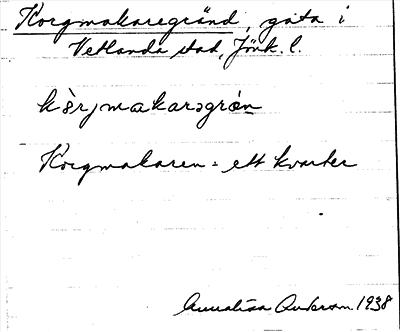 Korgmakaregränd, gata i
Vetlanda stad, Jönk. l.
Korgmakaren = ett kvarter
Annalisa Anderson 1938